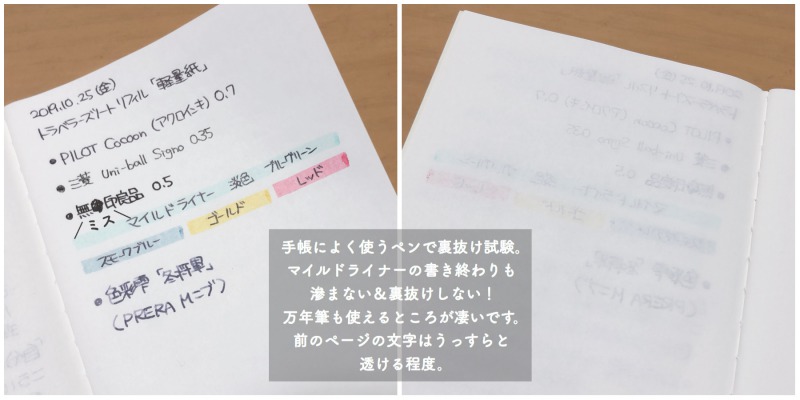 2019.10.25(金)
トラベラーズノート リフィル「軽量紙」
• PILOT Cocoon (アクロインキ) 0.7
• 三菱 Uni-ball Signo 0.35
• 無印良品 0.5
/ミス\
マイルドライナー 淡色 ブルーグリーン
スモークブルー ゴールド レッド
• 色彩雫「冬将軍」
(PRERA Mニブ)
手帳によく使うペンで裏抜け試験。
マイルドライナーの書き終わりも
滲まない&裏抜けしない!
万年筆も使えるところが凄いです。
前のページの文字はうっすらと
透ける程度。